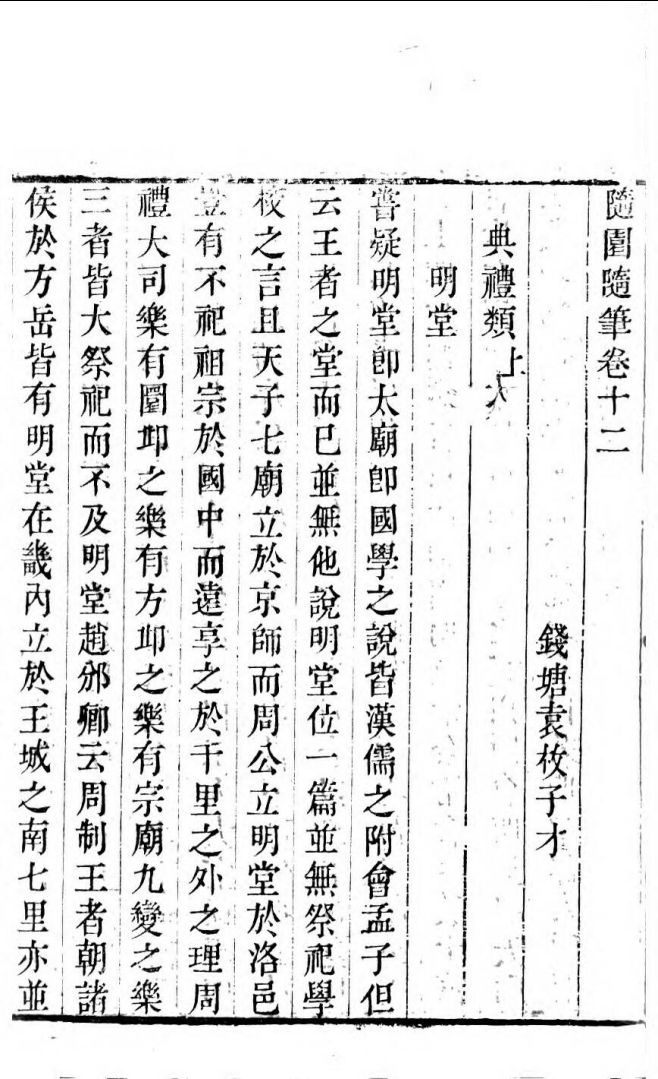 隨園隨筆卷十二
錢塘袁枚子才
典禮類上
明堂
嘗疑明堂卽太廟卽國學之說皆漢儒之附會孟子但
云王者之堂而已並無他說明堂位一篇並無祭祀學
校之言且天子七廟立於京師而周公立明堂於洛邑
豈有不祀祖宗於國中而遠享之於千里之外之理周
禮大司樂有圜丘之樂有方丘之樂有宗廟九變之樂
三者皆大祭祀而不及明堂趙邠卿云周制王者朝諸
侯於方岳皆有明堂在畿內立於王城之南七里亦並